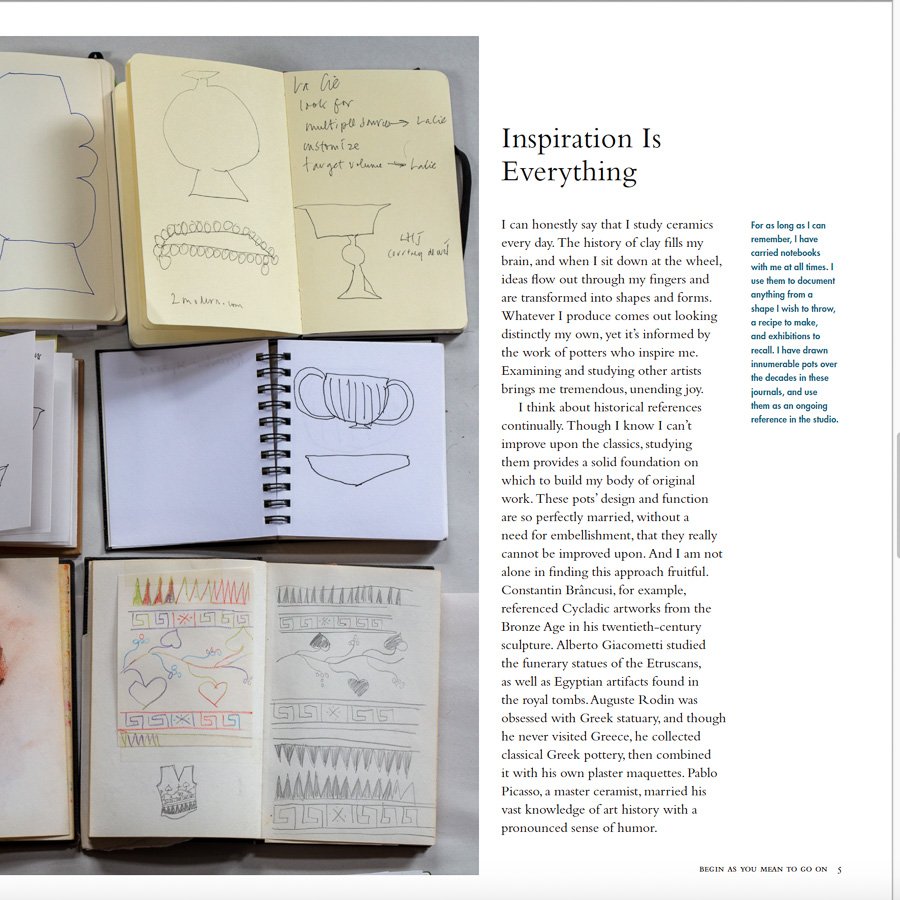 La Cie
look for
multiple sources → LaCie
customize
target volume → LaCie
2modern.com
Inspiration Is
Everything
I can honestly say that I study ceramics
every day. The history of clay fills my
brain, and when I sit down at the wheel,
ideas flow out through my fingers and
are transformed into shapes and forms.
Whatever I produce comes out looking
distinctly my own, yet it’s informed by
the work of potters who inspire me.
Examining and studying other artists
brings me tremendous, unending joy.
I think about historical references
continually. Though I know I can’t
improve upon the classics, studying
them provides a solid foundation on
which to build my body of original
work. These pots’ design and function
are so perfectly married, without a
need for embellishment, that they really
cannot be improved upon. And I am not
alone in finding this approach fruitful.
Constantin Brâncusi, for example,
referenced Cycladic artworks from the
Bronze Age in his twentieth-century
sculpture. Alberto Giacometti studied
the funerary statues of the Etruscans,
as well as Egyptian artifacts found in
the royal tombs. Auguste Rodin was
obsessed with Greek statuary, and though
he never visited Greece, he collected
classical Greek pottery, then combined
it with his own plaster maquettes. Pablo
Picasso, a master ceramist, married his
vast knowledge of art history with a
pronounced sense of humor.
For as long as I can
remember, I have
carried notebooks
with me at all times. I
use them to document
anything from a
shape I wish to throw,
a recipe to make,
and exhibitions to
recall. I have drawn
innumerable pots over
the decades in these
journals, and use
them as an ongoing
reference in the studio.
BEGIN AS YOU MEAN TO GO ON 5